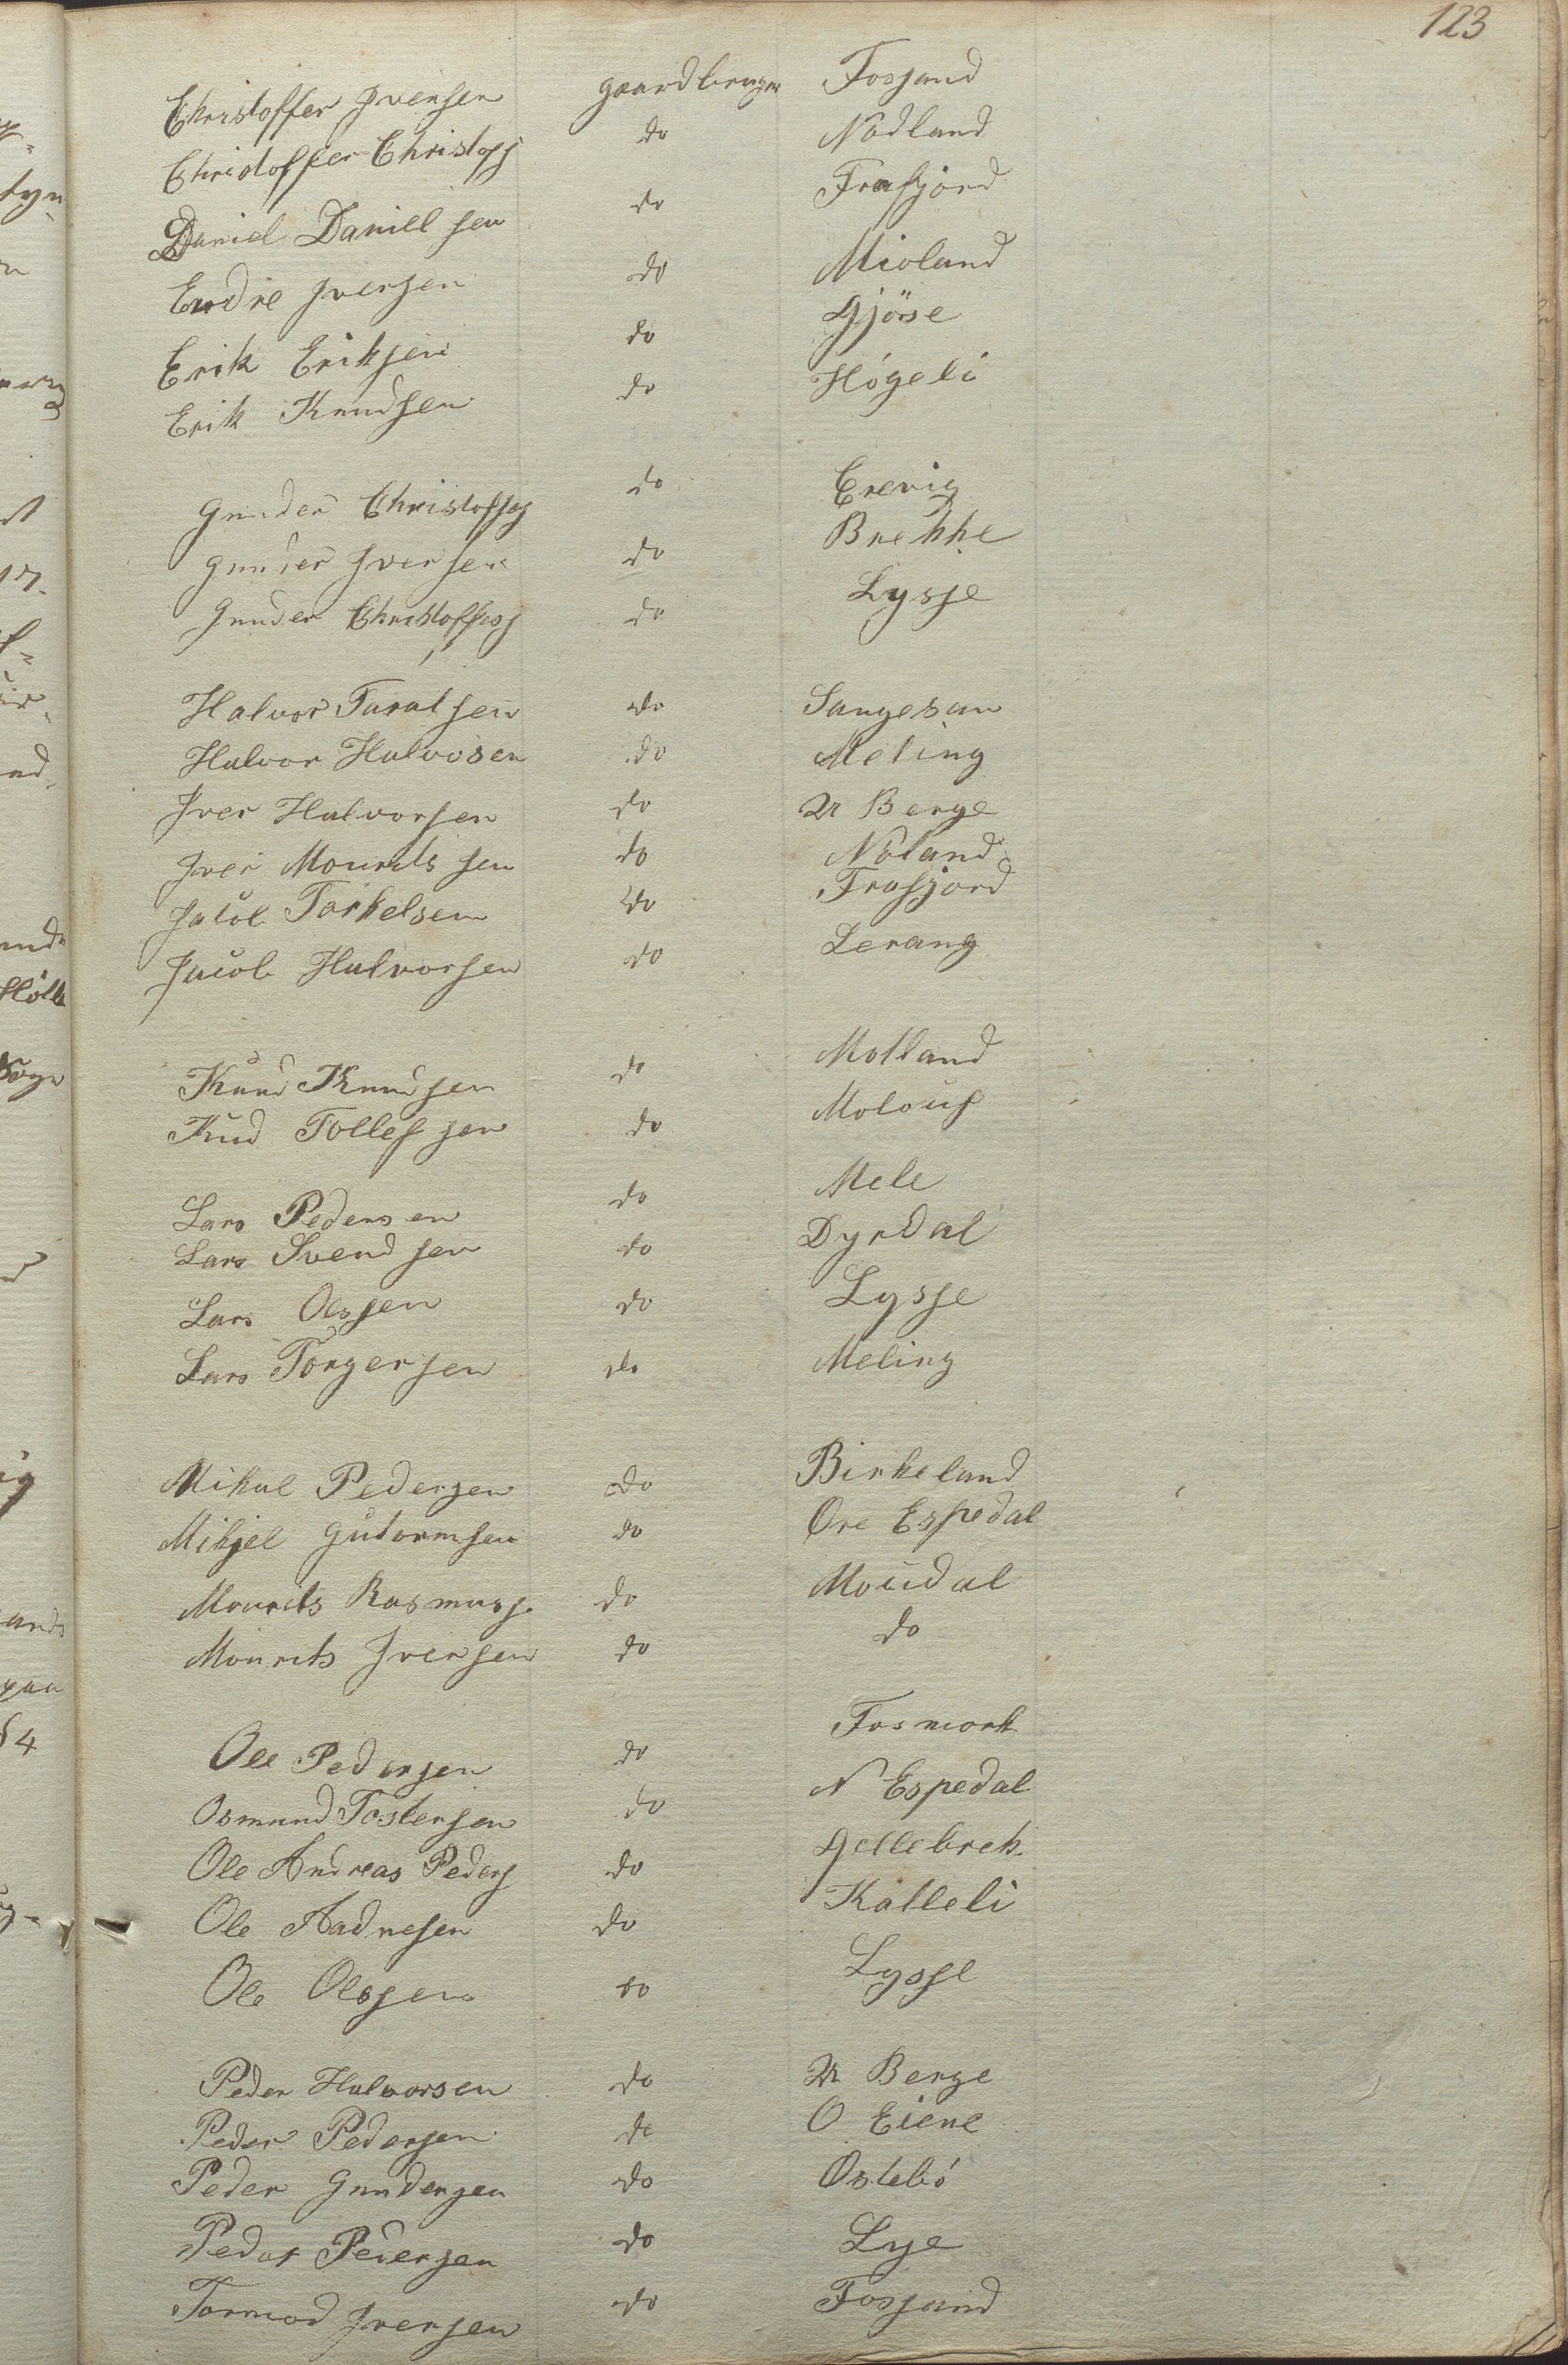 123
Christoffer Iversen gaardbruger Fossand
Christoffer Christofs do Nødland
Daniel Danielsen do Frafjord
Endre Iversen do Mioland
Erik Eriksen do Gjöse
Erik Knudsen do Högeli
Gunder Christoffes do Erevig
Gunder Iversen do Brekke
Gunder Christoffes do Lysse
Halvor Taralsen do Sangesan
Halvor Halvosen do Meling
Iver Halvorsen do Berge
Iver Mouritssen do Nøland
Jacob Torkelsen do Frafjord
Jacob Halvorsen do Lerang
Knud Knudsen do Molland
Knud Tollefsen do Molouf
Lars Pedersen do Mele
Lars Svendsen do Dyrdal
Lars Olssen do Lysse
Lars Torgersen do Meling
Mikal Pedersen do Birkeland
Mikjel Gutormsen do Øre Espedal
Mourits Rasmuss do Moudal
Mourits Iversen do do
Ole Pedersen do Fosmork
Osmund Tostensen do N Espedal
Ole Andreas Peders do Gellebrek
Ole Aadnesen do Kalleli
Ole Olssen do Lysse
Peder Halvorsen do Berge
Peder Pedersen do O Eiene
Peder Gundersen do Ostebó
Peder Pedersen do Lye
Tormod Iversen do Fossand